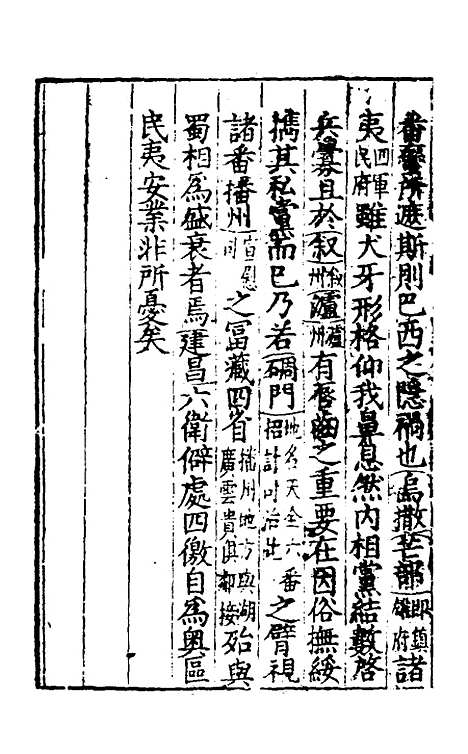 番蠻所斯則巴西之隱禍也烏撒芒部即鎮雄府諸
夷四軍民府雖犬牙形格仰我鼻息然內相黨結數啓
兵釁且於叙叙州瀘瀘州有唇齒之重要在因俗撫綏
擕其私黨而已乃若碉門地名天全六番招討司治此之臂視
諸番播州宣慰司之富藏四省播州地方與湖廣雲貴俱鄰接殆與
蜀相爲盛衰者焉建昌六衛僻處四徼自爲奥區
民夷安業非所憂矣